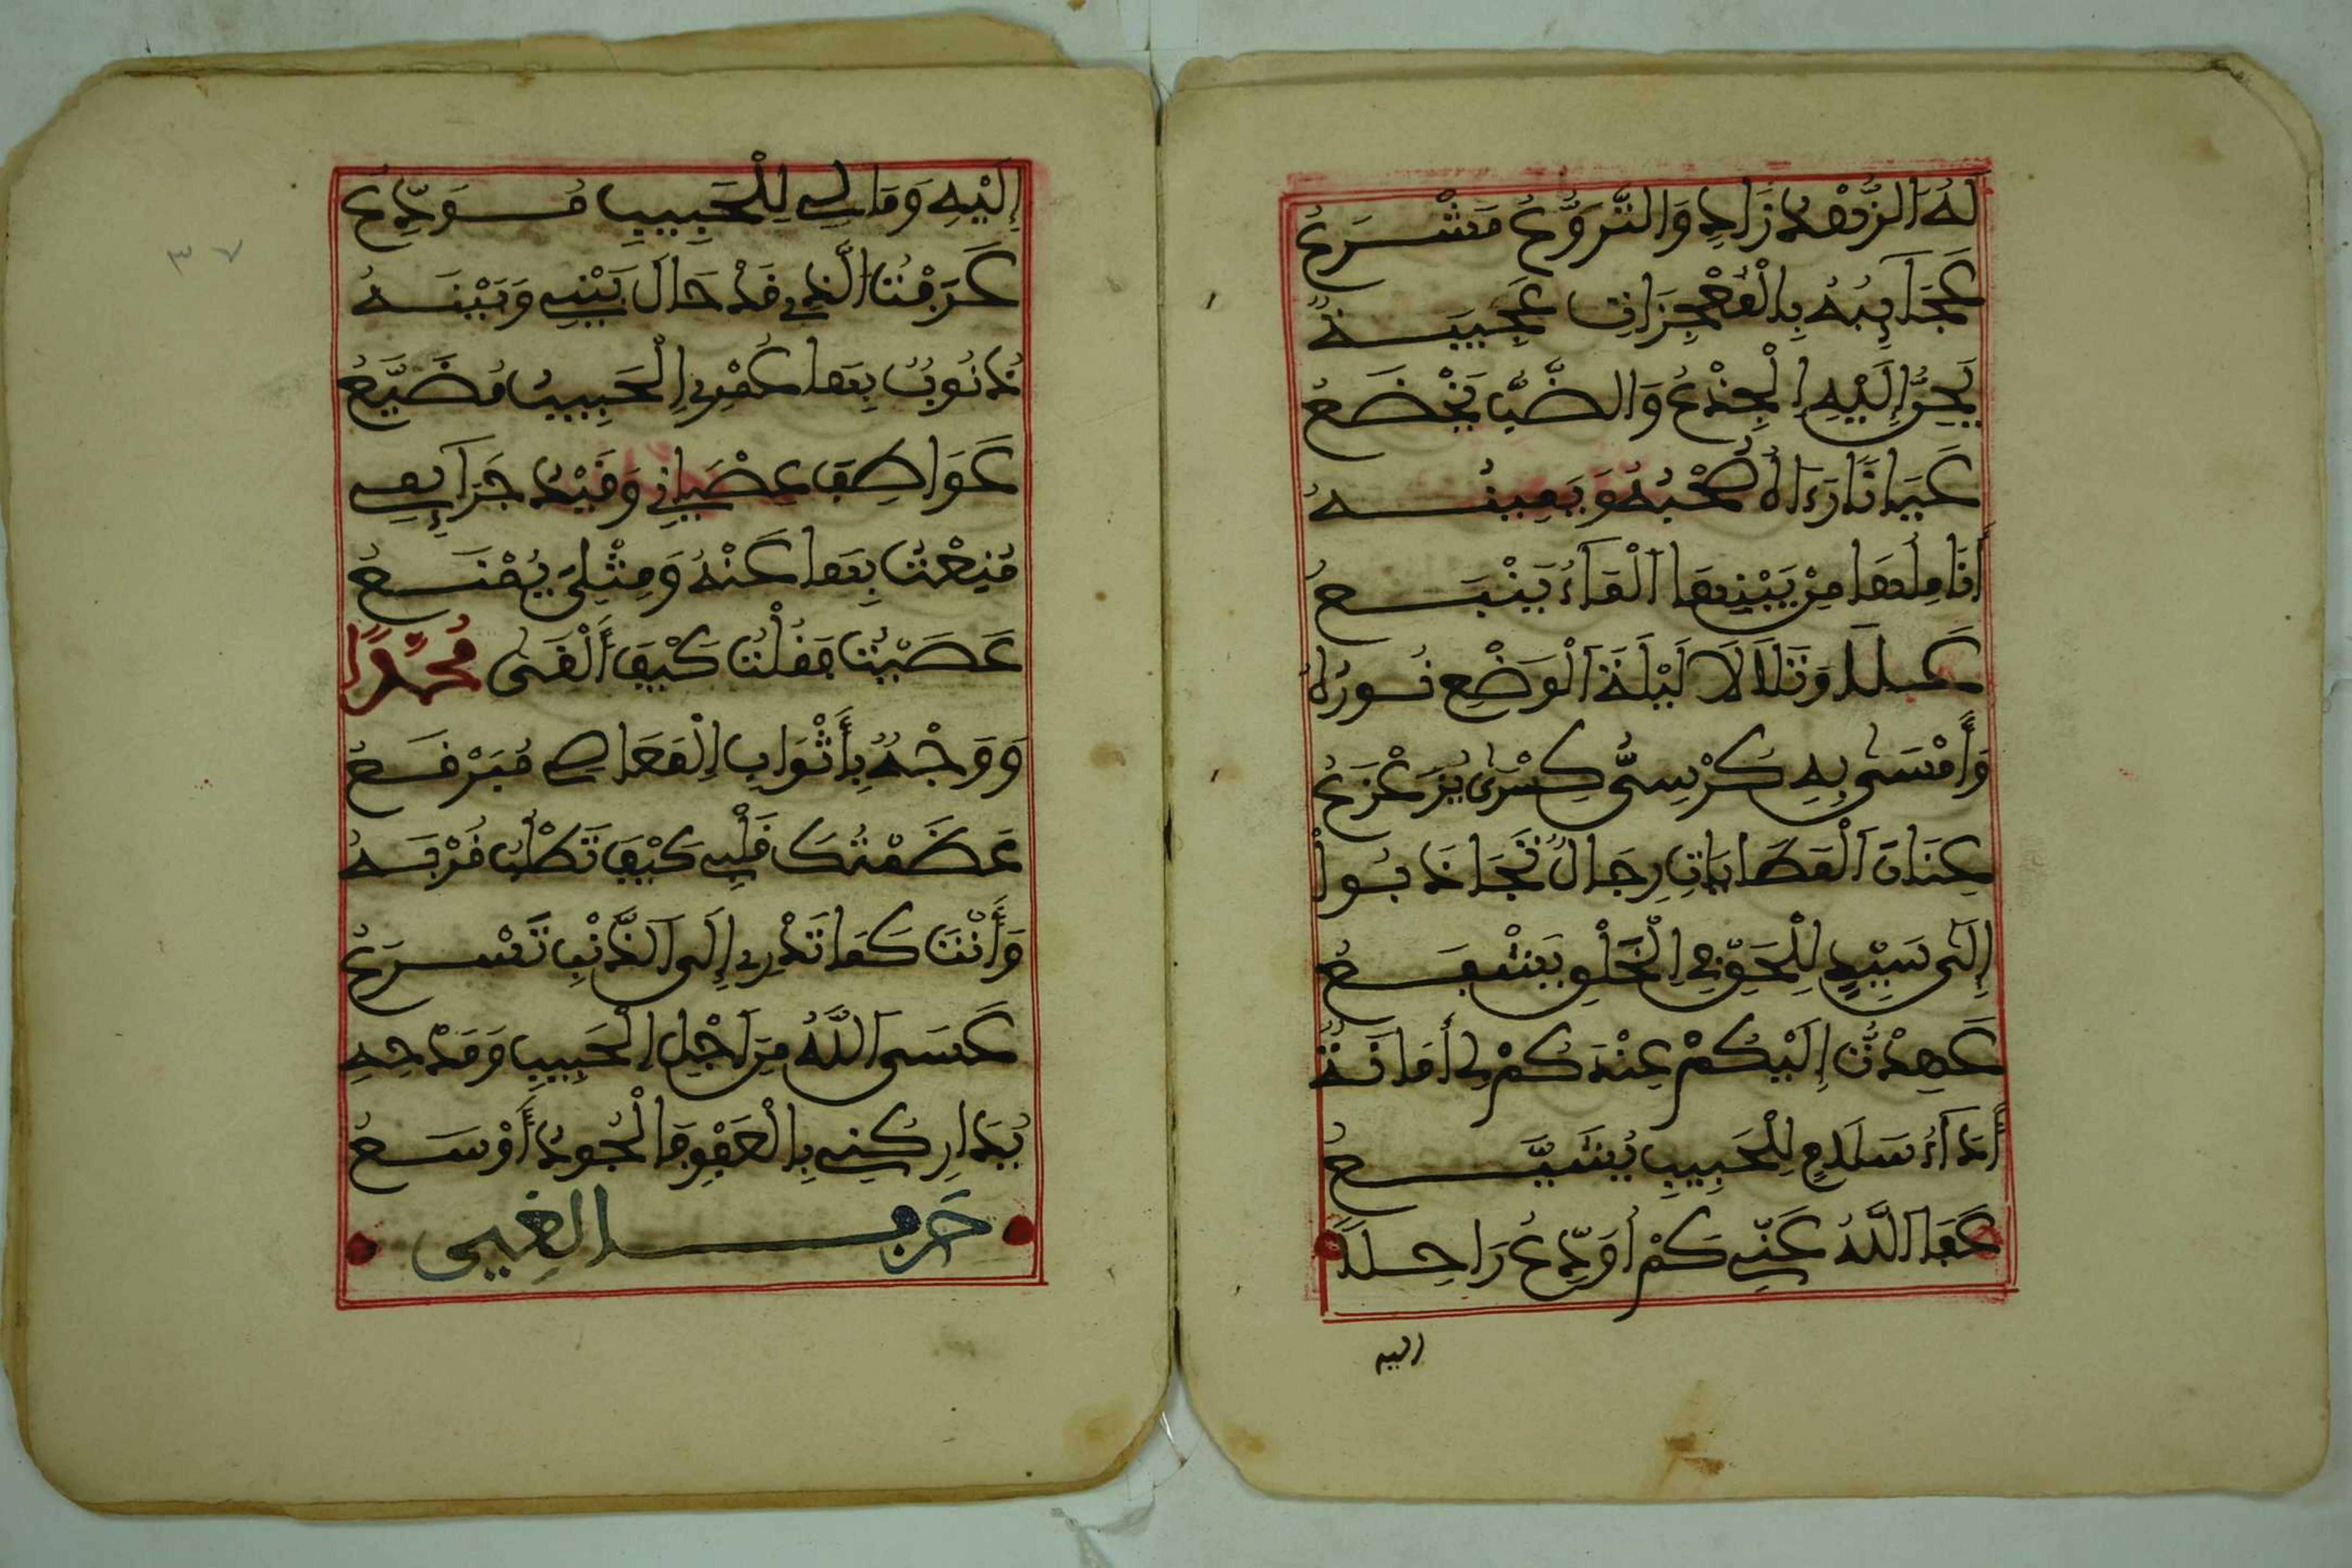 لَهُ اَلزُّهْدُ زَادٌ وَالتَّوَرُّعُ مَشْرَعُ
عَجَآئِبُهُ بِالْمُعْجِزَاتِ عَجِيبَةٌ
يَحِنُّ إِلَيْهِ اِلْجِذْعُ وَالضَّبُّ يَخْضَعُ
عَيَانًا رَءَاهُ صَحْبُهُ وَيَمِينُهُ
أَنَامِلُهَا مِنْ بَيْنِهَا اَلْمَآءُ يَنْبَعُ
عَلَا وَتَلَالَا لَيْلَةَ اَلْوَضْعِ نُورُهُ
وَأَمْسَى بِهِ كُرْسِىُّ كِسْرَى يُزَعْزَعُ
عِنَانَ اَلْمَطَايَاتِ رِجَالٌ تَجَاذَبُواْ
إِلَى سَيِّدٍ لِلْحَقِّ فِي اِلْخَلْقِ يَشْفَعُ
عَهِدْتُّ إِلَيْكُمْ عِنْدَكُمْ لِي أَمَانَةٌ
أَدَآءُ سَلَامٍ لِلْحَبِيبِ يُشَيَّعُ
عَفَا اَللَّهُ عَنِّي كَمْ أُوَدِّعُ رَاحِلًا
اليه
٣٧
إِلَيْهِ وَمَا لِي لِلْحَبِيبِ مُوَدِّعُ
عَرَفْتُ الَّذِي قَدْ حَالَ بَيْنِي وَبَيْنَهُ
ذُنُوبٌ بِهَا عُمْرِي اِلْحَبِيبُ مُضَيَّعُ
عَوَاطِفَ عِصْيَانِي وَقَيْدُ جَرَآئِمِي
مُنِعْتُ بِهَا عَنْهُ وَمِثْلِيَ يُمْنَعُ
عَصَيْتُ فَقُلْتُ كَيْفَ أَلْقَى مُحَمَّدًا
وَوَجْهُهُ بِأَثْوَابِ اِلْمَعَاصِي مُبَرْقَعُ
عَضَمْتُكَ قَلْبِي كَيْفَ تَطْلُبُ قُرْبَهُ
وَأَنْتَ كَمَا تَدْرِي إِلَى اَلذَّنْبِ تُسْرِعُ
عَسَى اَللَّهُ مِنَ اَجْلِ اِلْحَبِيبِ وَمَدْحِهِ
يُدَارِكُنِي بِالْعَفْوِ فَالْجُودُ أَوْسَعُ
حَرف الغين